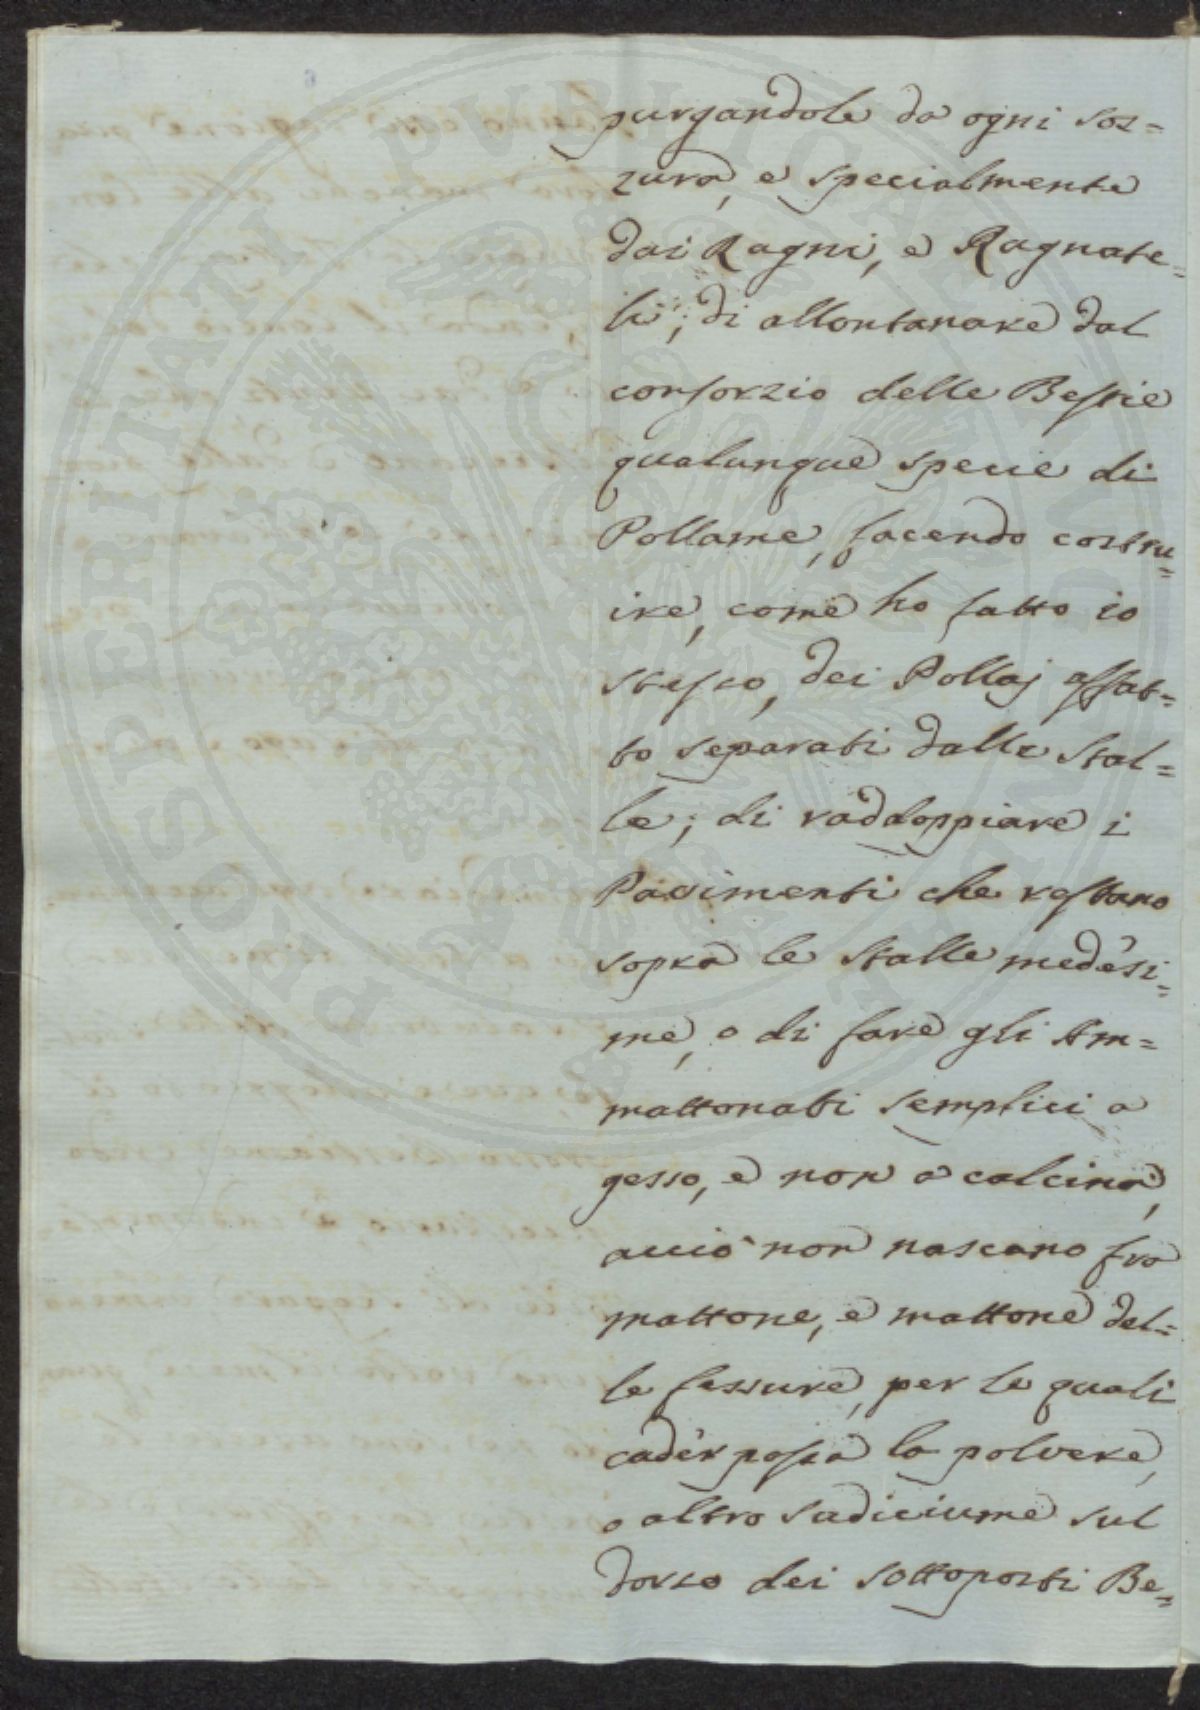 purgandole da ogni soz=
zura, e specialmente
dai Ragni, e Ragnate=
li; di allontanare dal
consorzio delle Bestie
qualunque specie di
Pollame, facendo costru=
ire, come ho fatto io
stesso, dei Pollaj affat=
to separati dalle Stal=
le; di raddoppiare i
Pavimenti che restano
sopra le Stalle medesi=
me, o di fare gli Am=
mattonati semplici a
gesso, e non a calcina,
acciò non nascano fra
mattone, e mattone del=
le fessure, per le quali
cader possa la polvere,
o altro sudiciume sul
dorso dei sottoposti Be=
PROSPERITATI PUBLICAE AUGENDAE